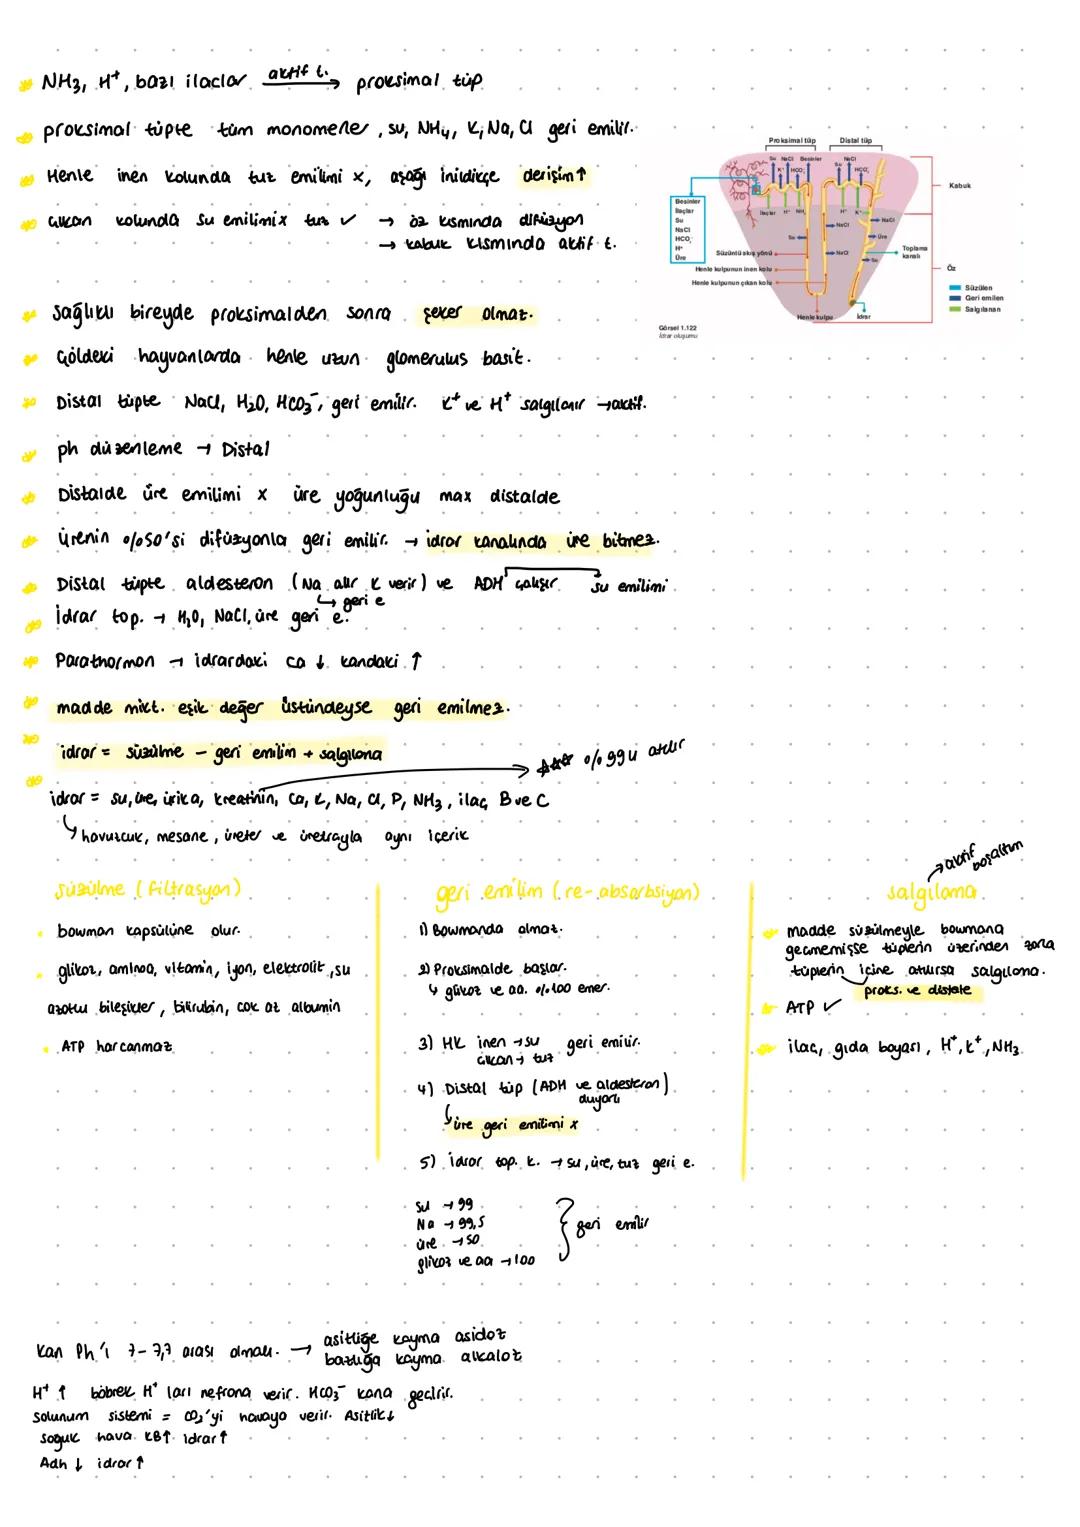 NH3, H+, bazı ilaclar aktif t. → proksimal tüp
proksimal tüpte tüm monomerler, su, NH4, K, Na, Cl geri emilir.
Henle inen kolunda tuz emilimi x, aşağı inildikçe derişim↑
çıkan kolunda su emilimi x tuz ✓ → öz kısmında difüzyon
→ kabuk kısmında aktif t.
Proksimal tüp
Distal tüp
Su NaCl Besinler
NaCl
K+ HCO3-
Su
HCO3-
Kabuk
Besinler
İlaçlar
Su
NaCl
HCO3-
H+
Üre
İlaçlar H+ NH3
H+ K+
NaCl
NaCl
Su
Üre
Süzüntü akış yönü
NaCl
Su
Toplama kanalı
Henle kulpunun inen kolu
Öz
Henle kulpunun çıkan kolu
Süzülen
Geri emilen
Salgılanan
Henle kulpu
İdrar
Görsel 1.122
İdrar oluşumu
sağlıklı bireyde proksimalden sonra şeker olmaz.
Göldeki hayvanlarda henle uzun glomerulus basit.
Distal tüpte NaCl, H2O, HCO3-, geri emilir. K+ ve H+ salgılanır →aktif.
ph düzenleme → Distal
Distalde üre emilimi x üre yoğunluğu max distalde
ürenin %50'si difüzyonla geri emilir. → idrar kanalında üre bitmez.
Distal tüpte aldesteron (Na alır K verir) ve ADH çalışır su emilimi
↳ geri e
İdrar top. → H2O, NaCl, üre geri e.
Parathormon → idrardaki ca ↓ kandaki ↑
madde mikt. eşik değer üstündeyse geri emilmez.
idrar = süzülme - geri emilim + salgılama
*** %99u atılır
idrar = su, üre, ürik a, kreatinin, Ca, K, Na, Cl, P, NH3, ilaç B ve C
↳ havuzcuk, mesane, üreter ve üretrayla aynı içerik
→ aktif boşaltım
süzülme (filtrasyon)
bowman kapsülüne olur.
glikoz, aminoa, vitamin, iyon, elektrolit, su
azotlu bileşikler, bilirubin, çok az albumin
ATP harcanmaz
geri emilim (re-absorbsiyon)
1) Bowmanda olmaz.
2) Proksimalde başlar.
↳ glikoz ve aa. %100 emer.
3) HK inen → su geri emilir.
çıkan → tuz
4) Distal tüp (ADH ve aldesteron)
duyarlı
↳ üre geri emilimi x
5) idrar top. k. → su, üre, tuz geri e.
su → 99
Na → 99,5
üre → 50
glikoz ve aa → 100
} geri emilir
salgılama
madde süzülmeyle bowmana
geçmemişse tüplerin üzerinden zorla
tüplerin içine atılırsa salgılama.
proks. ve distale
ATP ✓
ilaç, gıda boyası, H+, K+, NH3
Kan Ph'ı 7-7,7 arası olmalı. → asitliğe kayma asidoz
bazlığa kayma alkaloz
H+ ↑ böbrek H+ ları nefrona verir. HCO3- kana geçirir.
solunum sistemi = CO2'yi havaya verir. Asitlik↓
soğuk hava KB↑ idrar↑
Adh ↓ idrar ↑